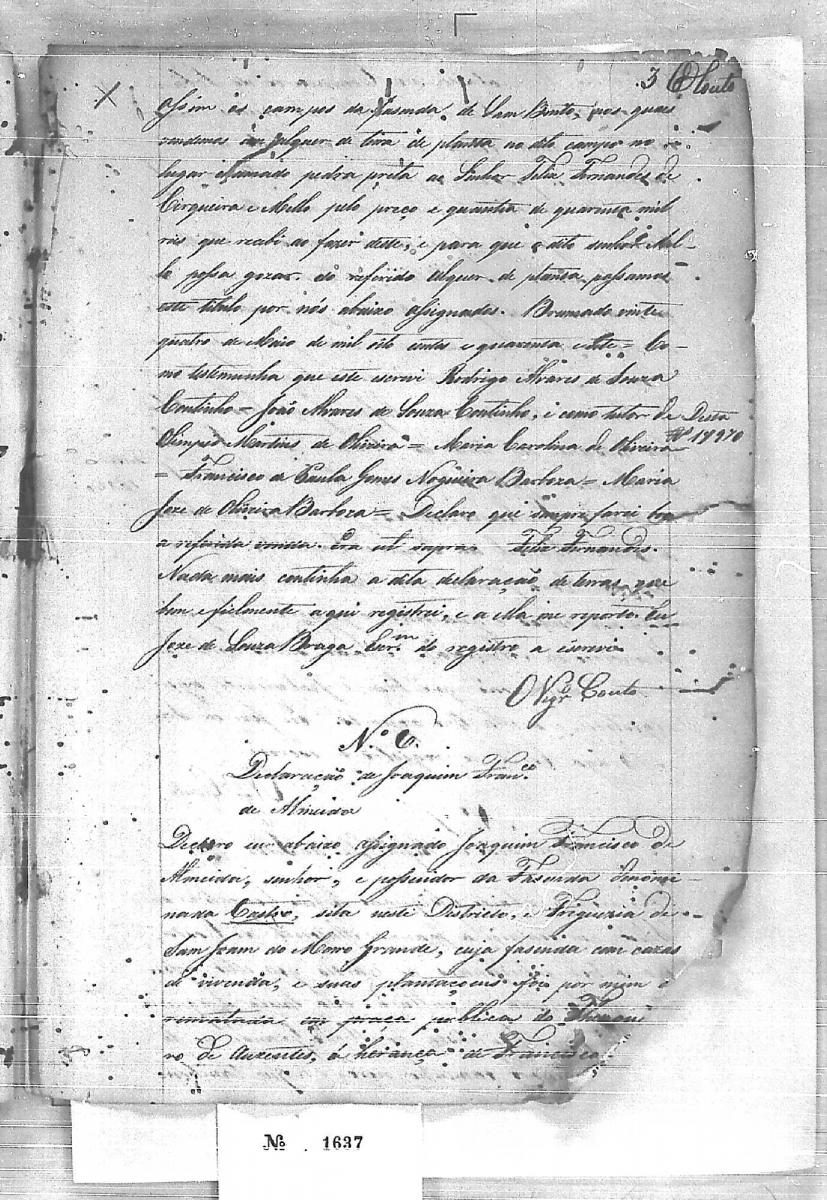 3 Couto
assim os campos da Fasenda de Sam Bento, nos quais
vendemos um alquer de terra de planta no dito campo no
lugar chamado pedra preta ao Senhor Felix Fernandes de
Cirqueira e Mello pelo preço e quantia de quarenta mil
reis que recebi ao fazer deste, e para que o dito senhor Mel-
lo possa gozar do referido alquer de planta passamos
este titulo por nós abaixo assignados. Brumado vinte
quatro de Maio de mil oito centos e quarenta e sete = Co-
mo testemunha que este escrevi Rodrigo Alvares de Souza
Coutinho = João Alvares de Souza Coutinho, e como tutor de Desta
Olimpio Martins de Oliveira = Maria Carolina de Oliveira
= Francisco de Paula Gomes Nogueira Barboza = Maria
Joze de Oliveira Barboza = Declaro que sempre farei boa
a referida venda. Era ut supra Felix Fernandes.
Nada mais continha a dita declaração de terras, que
bem e fielmente aqui registrei, e a ella me reporto. Eu
Joze de Souza Braga Escr.im do registro a escrevi
O Vigr.o Couto
N.o 6.
Declaração de Joaquim Fran.co
de Almeida
Declaro eu abaixo assignado Joaquim Francisco de
Almeida, senhor, e possuidor da Fasenda denomi-
nada Castro, sita neste Districto, e Freguezia de
Sam Joam do Morro Grande, cuja fasenda com cazas
de vivenda, e suas plantaçoens foi por mim
rematada em praça publica do
ro de Auzentes, á herança de Francisco
№ 1637